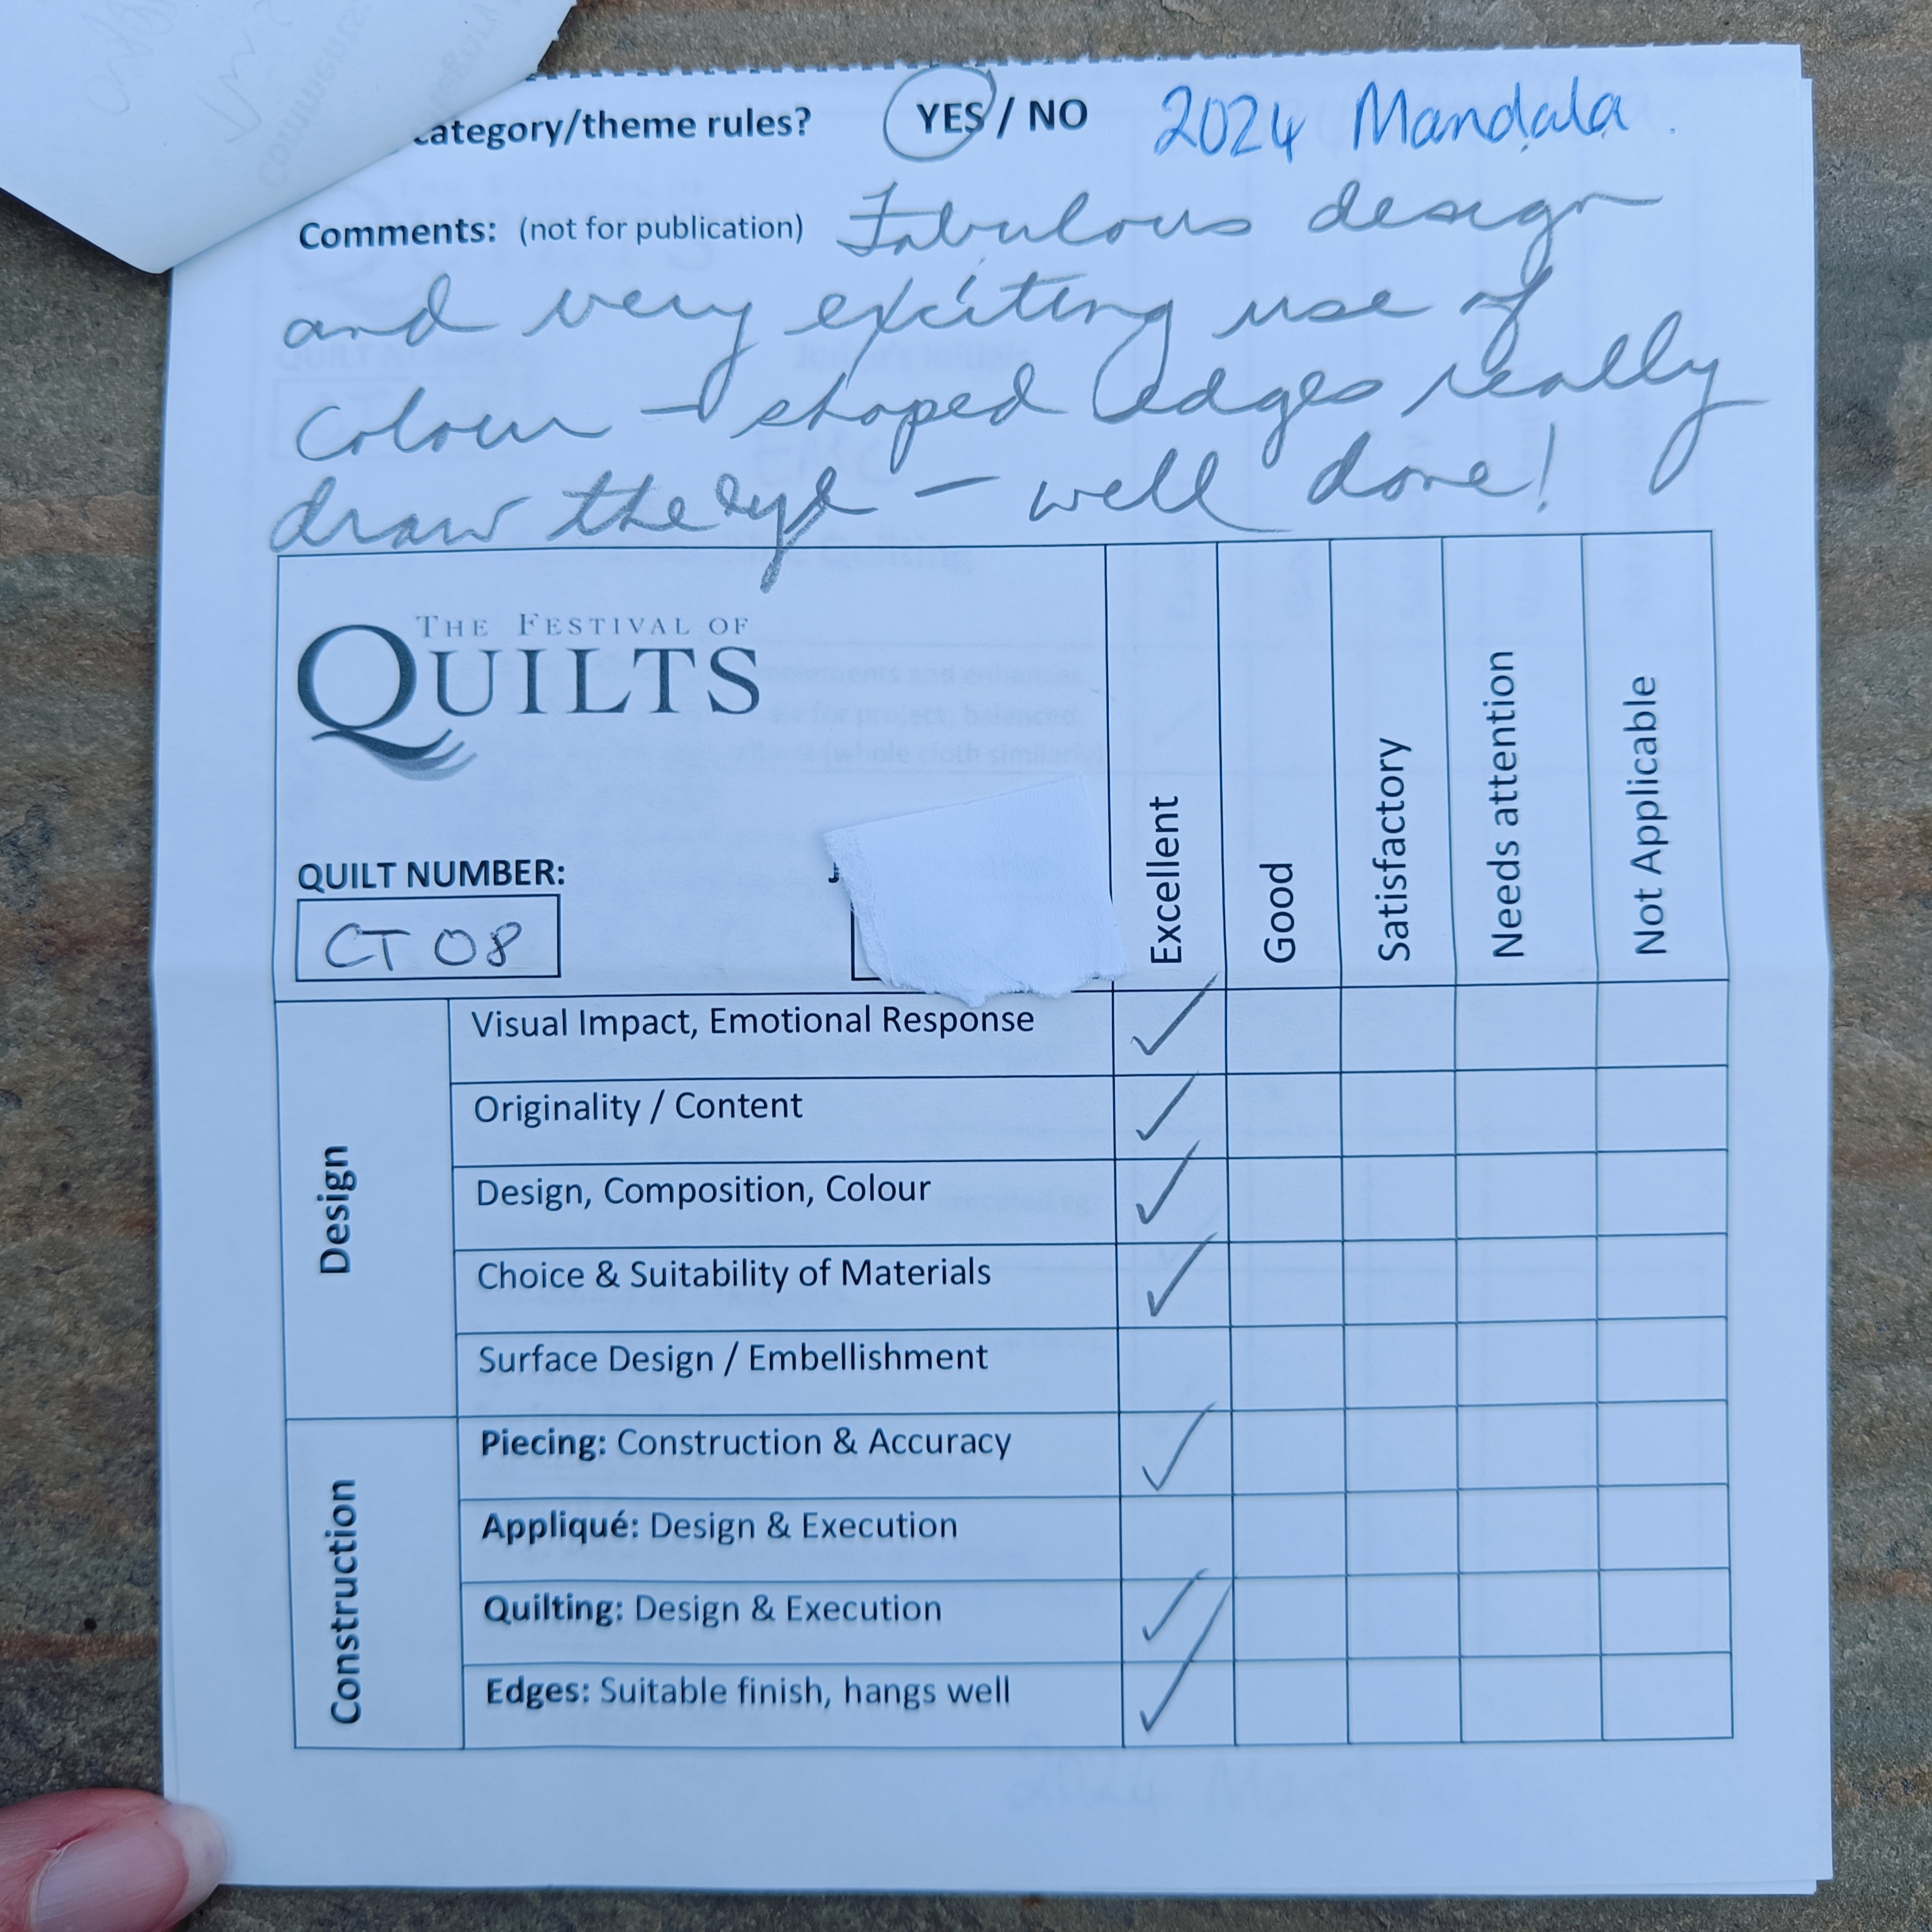 category/theme rules? YES / NO 2024 Mandala.
Comments: (not for publication) Fabulous design
and very exciting use of
colour - shaped edges really
draw the eye - well done!
THE FESTIVAL OF
QUILTS
QUILT NUMBER:
CT 08
Excellent
Good
Satisfactory
Needs attention
Not Applicable
Design
Visual Impact, Emotional Response
Originality / Content
Design, Composition, Colour
Choice & Suitability of Materials
Surface Design / Embellishment
Construction
Piecing: Construction & Accuracy
Appliqué: Design & Execution
Quilting: Design & Execution
Edges: Suitable finish, hangs well